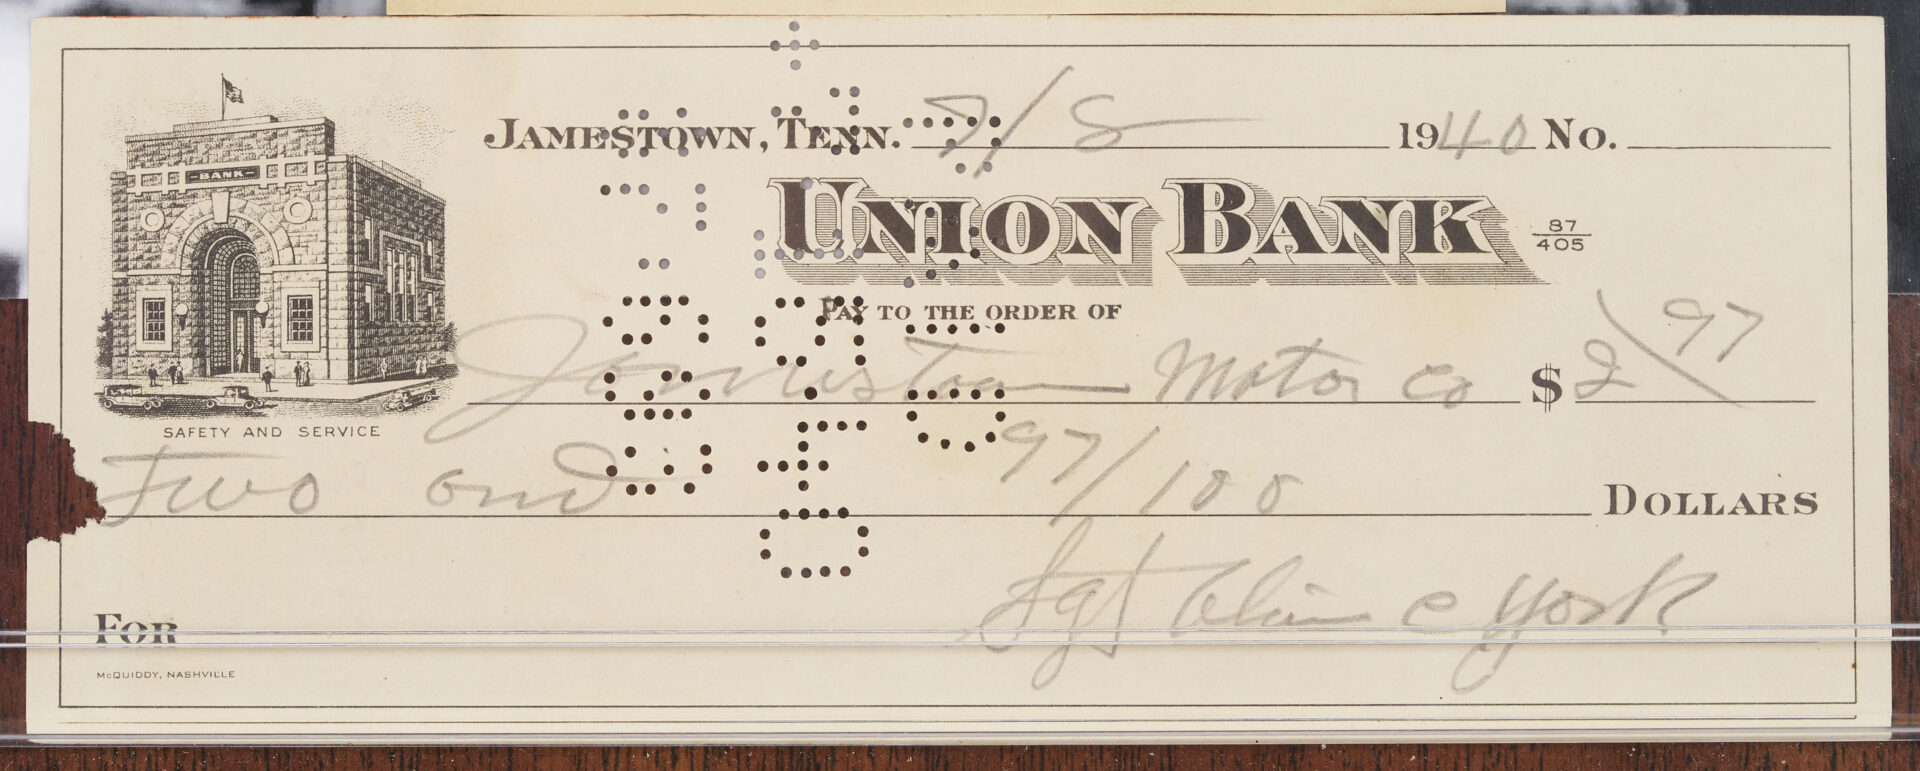 BANK
JAMESTOWN, TENN. 7/8 1940 No.
UNION BANK 87/405
PAY TO THE ORDER OF
Jamestown Motor Co $2 97
SAFETY AND SERVICE
Two and 97/100 DOLLARS
Sgt Alvin C York
FOR
McQUIDDY, NASHVILLE